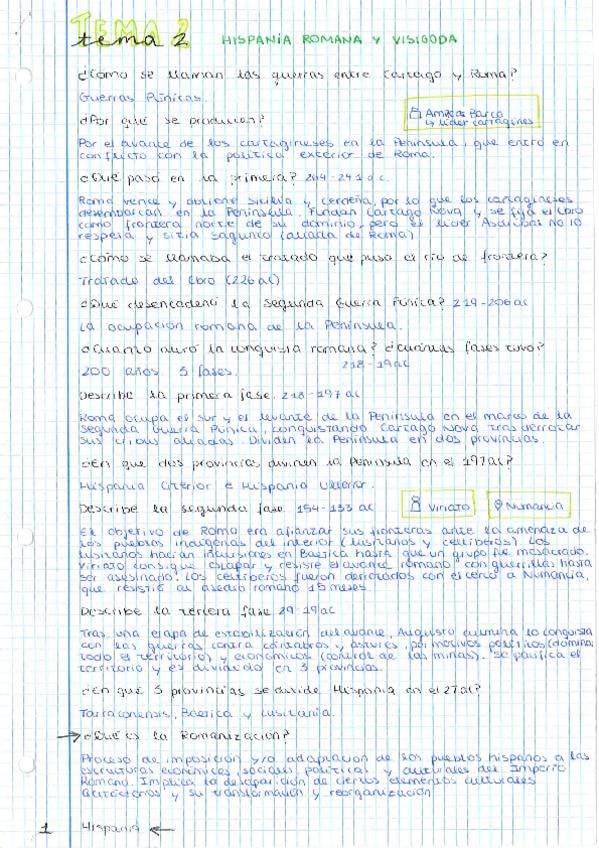 TEMA 2
tema 2 HISPANIA ROMANA Y VISIGODA
¿Cómo se llaman las guerras entre Cartago y Roma?
Guerras Púnicas.
¿Por qué se producen?
Amílcar Barca
↳ líder cartaginés
Por el avance de los cartagineses en la Península, que entró en
conflicto con la política exterior de Roma.
¿Qué pasó en la primera? 264-241 a.c.
Roma vence y obtiene Sicilia y Cerdeña, por lo que los cartagineses
desembarcan en la Península. Fundan Cartago Nova y se fija el Ebro
como frontera norte de su dominio, pero el líder Asdrúbas no lo
respeta y sitia Sagunto (aliada de Roma)
¿Cómo se llamaba el tratado que puso el río de frontera?
Tratado del Ebro (226 ac)
¿Qué desencadenó la Segunda Guerra Púnica? 219-206 ac
La ocupación romana de la Península.
¿Cuánto duró la conquista romana? ¿Cuántas fases tuvo?
200 años 3 fases. 218-19 ac
Describe la primera fase. 218-197 ac
Roma ocupa el sur y el levante de la Península en el marco de la
Segunda Guerra Púnica, conquistando Cartago Nova tras derrotar
sus aliadas. Dividen la Península en dos provincias.
¿En que dos provincias dividen la Península en el 197 ac?
Hispania Citerior e Hispania Ulterior.
Describe la segunda fase 154-133 ac Viriato Numancia
El objetivo de Roma era afianzar sus fronteras ante la amenaza de
los pueblos indígenas del interior (lusitanos y celtíberos). Los
lusitanos hacían incursiones en Baetica hasta que un grupo fue masacrado.
Viriato consigue escapar y resiste el avance romano con guerrillas hasta
ser asesinado. Los celtíberos fueron derrotados con el cerco a Numancia,
que resistió al asedio romano 15 meses.
Describe la tercera fase 29-19 ac
Tras una etapa de estabilización del avance, Augusto culmina la conquista
con las guerras contra cántabros y astures, por motivos políticos (domina
todo el territorio) y económicos (control de las minas). Se pacifica el
territorio y es dividido en 3 provincias.
¿En qué 3 provincias se divide Hispania en el 27 ac?
Tarraconensis, Baetica y Lusitania.
→ ¿Qué es la Romanización?
Proceso de imposición y/o adaptación de los pueblos hispanos a las
estructuras económicas, sociales, políticas y culturales del Imperio
Romano. Implica la desaparición de ciertos elementos culturales
anteriores y su transformación y reorganización
1 Hispania ←